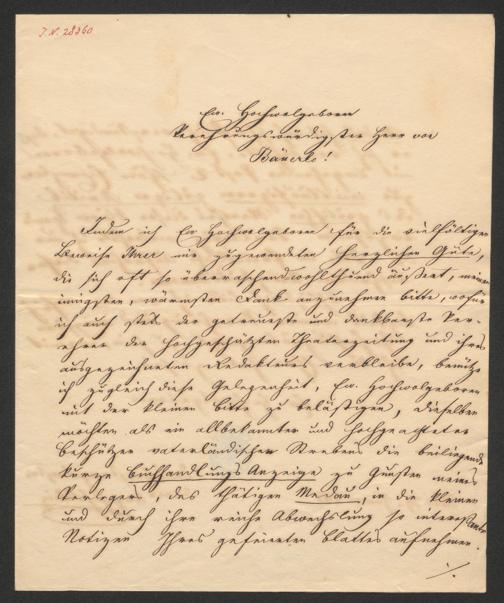 I. N. 28360
Ew. Hochwolgeboren
Verehrungswürdigster Herr von
Bäuerle!
Indem ich Ew Hochwolgeboren für die vielfältigen
Beweise Ihrer mir zugewendeten herzlichen Güte,
die sich oft so überraschend wohlthuend äußert, meinen
innigsten, wärmsten Dank anzunehmen bitte, wofür
ich auch stets der getreueste und dankbarste Ver-
ehrer der hochgeschätzten Theaterzeitung und ihres
ausgezeichneten Redakteurs verbleibe, benütze
ich zugleich diese Gelegenheit, Ew. Hochwolgeboren
mit der kleinen Bitte zu belästigen, Dieselben
möchten als ein allbekannter und hochgeachteter
Beschützer vaterländischen Strebens die beiliegende
kurze Buchhandlungs Anzeige zu Gunsten meines
Verlegers, des thätigen Medau, in die kleinen
und durch ihre reiche Abwechslung so interessanten
Notizen Ihres gefeierten Blattes aufnehmen.
./.